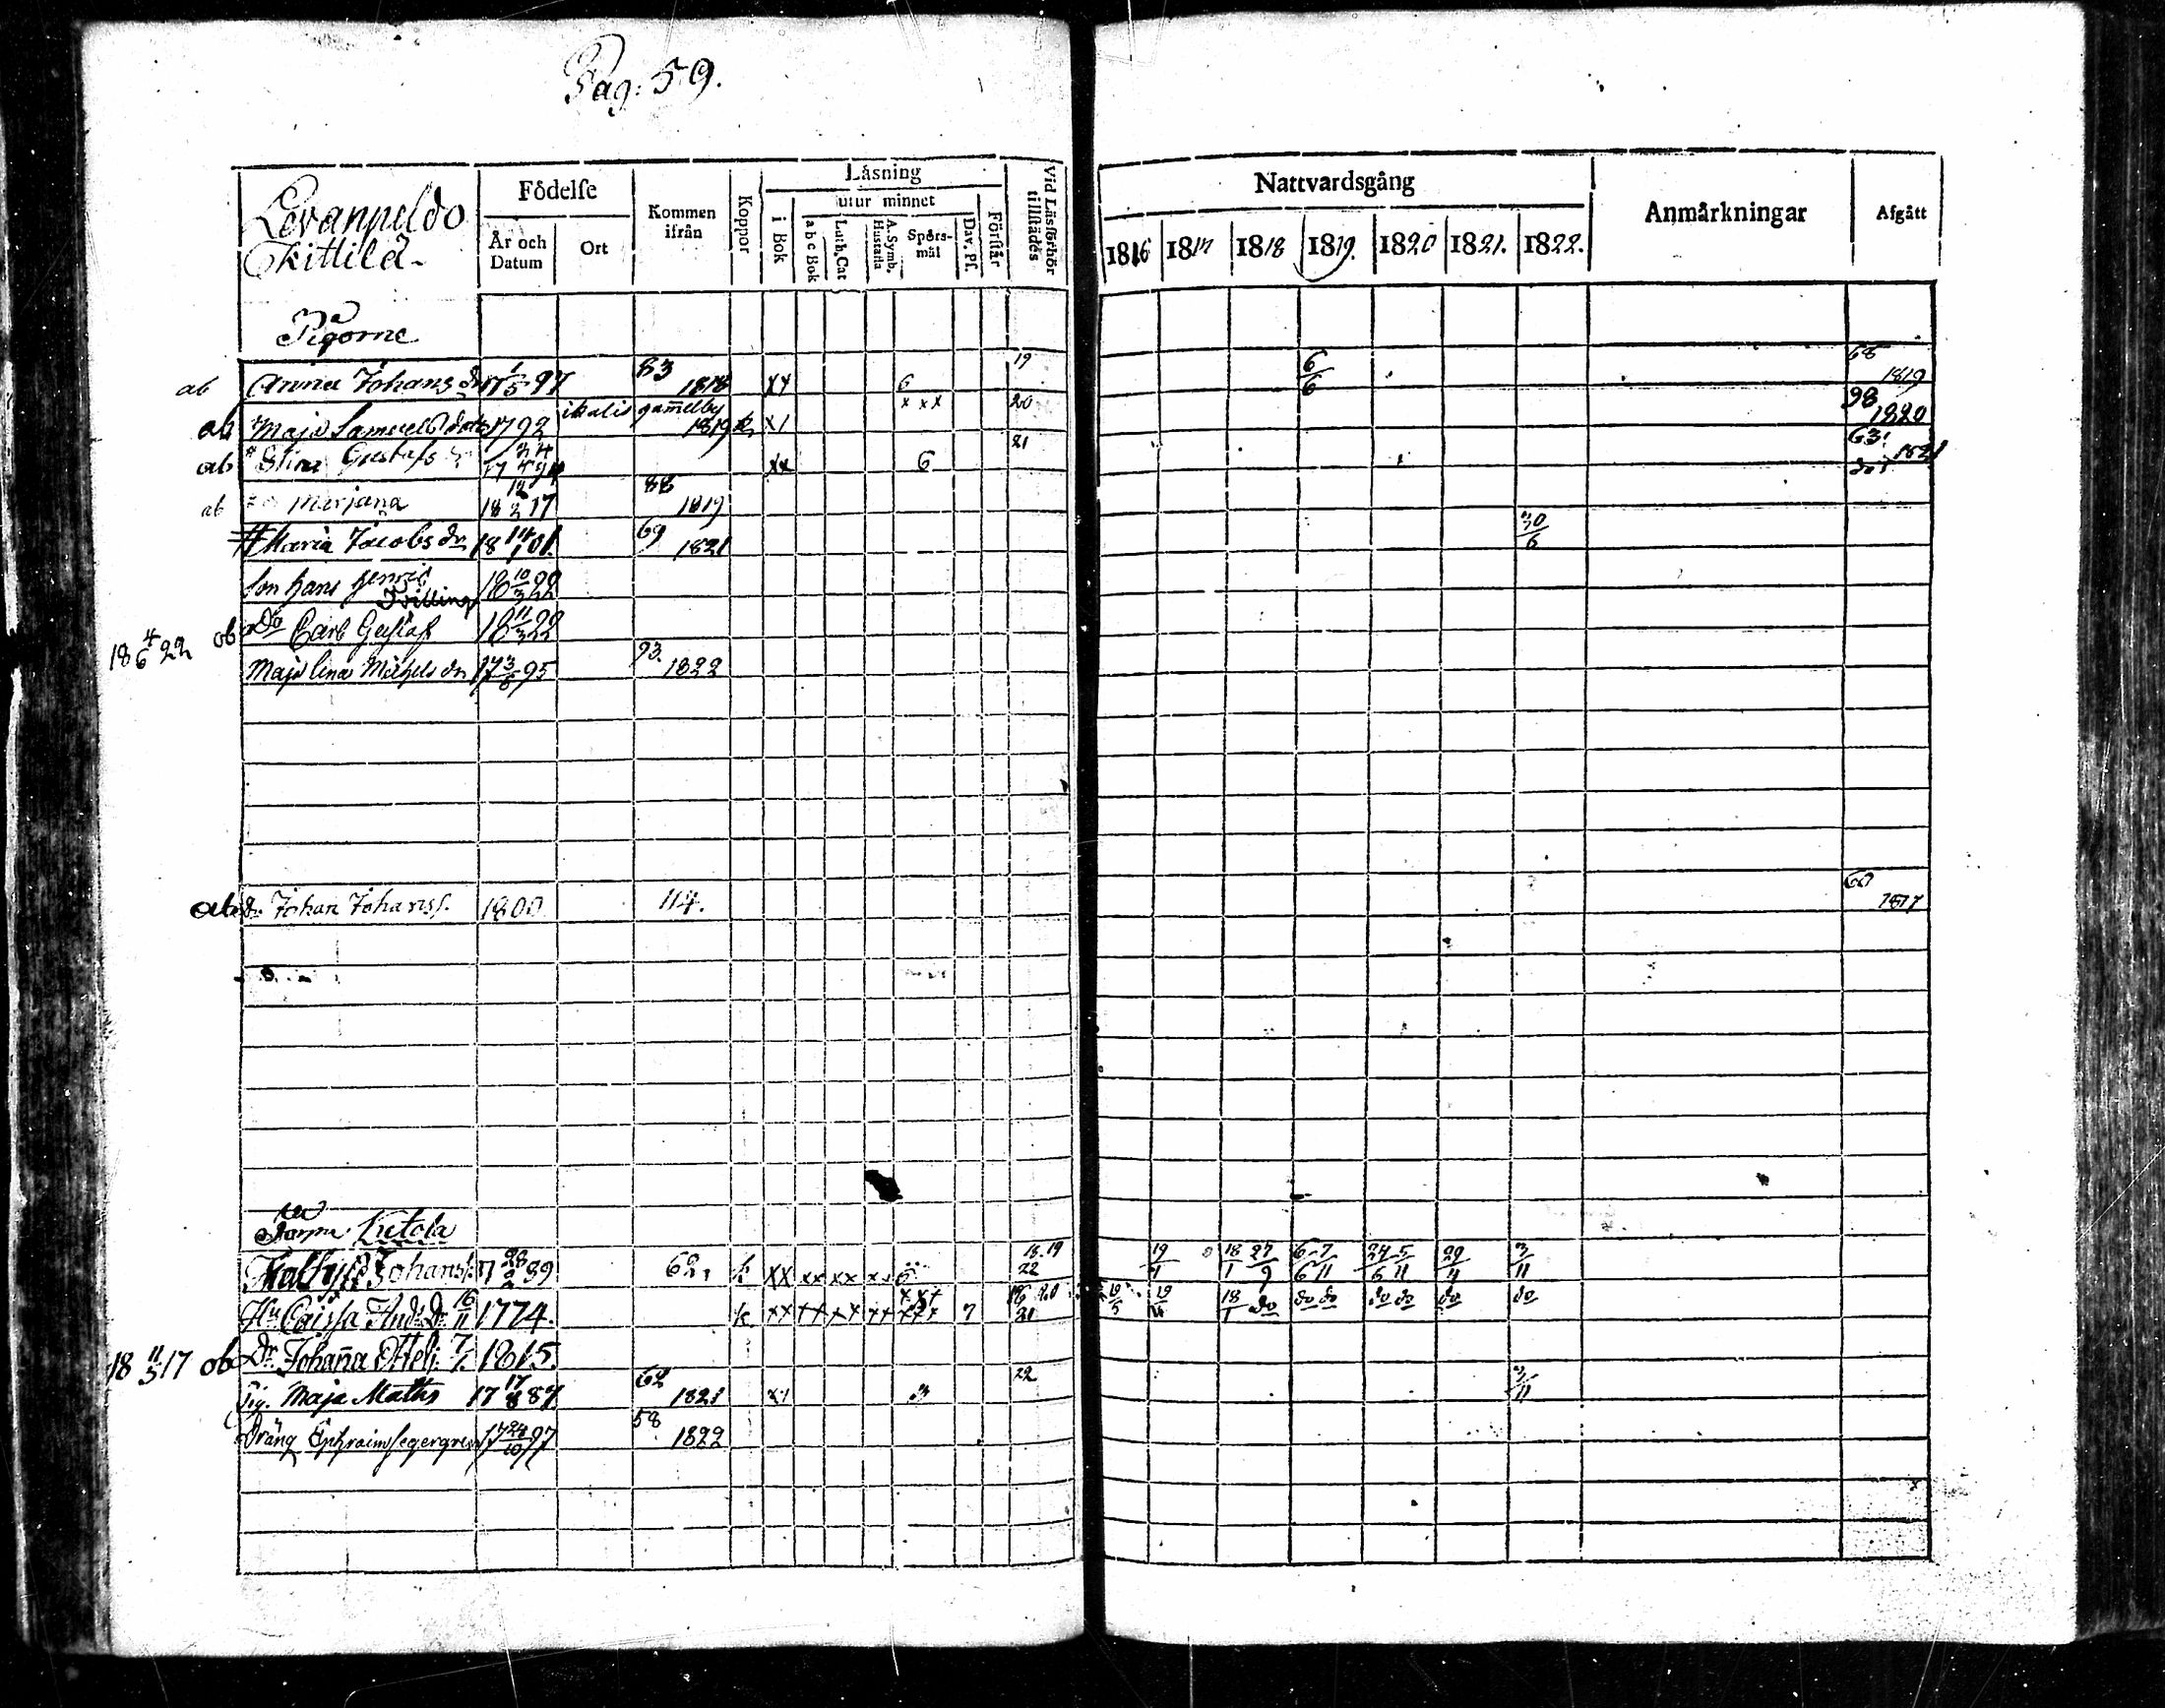 Pag: 59.
Levanpeldo
Skittilä
Födelse
År och Datum
Ort
Kommen ifrån
Koppor
Läsning
i Bok
utur minnet
a b c Bok
Luth. Cat
A. Symb. Hustafla
Spörs-mål
Dav. Ps.
Förstår
Vid Läsförhör tillstädes
Nattvardsgång
1816 1817 1818 1819. 1820 1821. 1822.
Anmärkningar
Afgått
Pigorne
ab Anna Johans dr 17 1/5 97 53 1818 xx 6 19 6/6 68 1819
ab Maja Samuels dotr 1792 gamelby 1819 k x1 x x x 20 98 1820
ab Stina Gustafs dr 17 24/4 94 xx 6 21 63 1821
ab Marjana 18 12/2 17 88 1819
Maria Jacobs dr 18 14/1 01. 69 1821 30/6
Son hans Henric 18 10/3 22
Tvilling
ob 18 4/6 22 Do Carl Gustaf 18 11/3 22
Maja lena Michels dr 17 3/8 95 93. 1822
ab Dr Johan Johanss. 1800 114. 60 1817
Torpu Kutola
Mathys Johanss. 17 28/2 89 62, k xx xx xx xx 6 18.19 22 19/1 18/1 27/9 6/6 7/11 24/6 5/11 29/4 3/11
Hu Caissa And. Dr 16/11 1774. k xx xx xx xx xxx 7 16 20 21 18/1 do do do do do do do
18 11/5 17 ob Dr Johaña Ottelj. 7/1 1815.
Pig. Maja Maths 17 17/8 87 62 1821 x1 3 22 3/11
Dräng Ephraim Segergren 17 24/10 97 58 1822